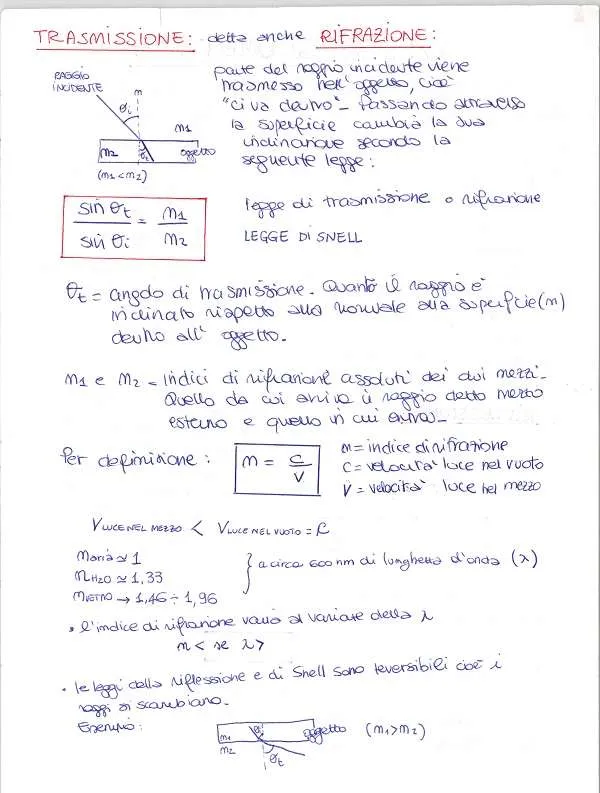 TRASMISSIONE: detta anche RIFRAZIONE:
parte del raggio incidente viene
trasmesso nell'oggetto, cioè
"ci va dentro". Passando attraverso
la superficie cambia la sua
inclinazione secondo la
seguente legge:
RAGGIO
INCIDENTE
n
θi
n1
n2
θt
oggetto
(n1 < n2)
sin θt / sin θi = n1 / n2
legge di trasmissione o rifrazione
LEGGE DI SNELL
θt = angolo di trasmissione. Quanto il raggio è
inclinato rispetto alla normale alla superficie (n)
dentro all'oggetto.
n1 e n2 = indici di rifrazione assoluti dei due mezzi.
Quello da cui arriva il raggio detto mezzo
esterno e quello in cui entra.
Per definizione:
n = c / v
n = indice di rifrazione
c = velocità luce nel vuoto
v = velocità luce nel mezzo
V LUCE NEL MEZZO < V LUCE NEL VUOTO = C
n aria ≃ 1
n H2O ≃ 1,33
n VETRO → 1,46 ÷ 1,96
} a circa 600 nm di lunghezza d'onda (λ)
• l'indice di rifrazione varia al variare della λ
n < se λ >
• le leggi della riflessione e di Snell sono reversibili cioè i
raggi si scambiano.
Esempio:
n1
n2
θi
θt
oggetto
(n1 > n2)